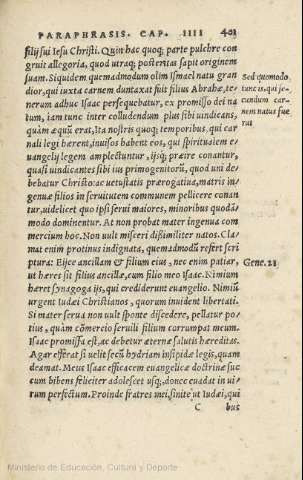 PARAPHRASIS. CAP. IIII 401
filij sui Iesu Christi. Quin hac quoq; parte pulchre con
gruit allegoria, quod utraq; posteritas sapit originem
suam. Siquidem quemadmodum olim Ismael natu gran
dior, qui iuxta carnem duntaxat fuit filius Abrahæ, te/
nerum adhuc Isaac persequebatur, ex promisso dei na
tum, iam tunc inter colludendum plus sibi uindicans,
quàm æquũ erat, Ita nostris quoq; temporibus, qui car
nali legi hærent, inuisos habent eos, qui spiritualem e/
uangelij legem amplectuntur, ijsq; præire conantur,
quasi uindicantes sibi ius primogenitorũ, quod uni de/
bebatur Christo: ac uetustatis prærogatiua, matris in/
genuæ filios in seruitutem communem pellicere conan
tur, uidelicet quo ipsi serui maiores, minoribus quodã/
modo dominentur. At non probat mater ingenua com
mercium hoc. Non uult misceri dißimiliter natos. Cla/
mat enim protinus indignata, quemadmodũ refert scri
ptura: Eijce ancillam & filium eius, nec enim patiar,
ut hæres sit filius ancillæ, cum filio meo Isaac. Nimium
hæret synagoga ijs, qui crediderunt euangelio. Nimiũ
urgent Iudæi Christianos, quorum inuident libertati.
Si mater serua non uult sponte discedere, pellatur po/
tius, quàm cõmercio seruili filium corrumpat meum.
Isaac promissa est, ac debetur æternæ salutis hæreditas.
Agar efferat si uelit secũ hydriam insipidæ legis, quam
deamat. Meus Isaac efficacem euangelicæ doctrinæ suc
cum bibens feliciter adolescet usq;, donec euadat in ui/
rum perfectum. Proinde fratres mei, sinite ut Iudæi, qui
C bus
Sed quomodo
tunc is, qui se/
cundum car/
nem natus fue
rat
Gene. 21
Ministerio de Educación, Cultura y Deporte